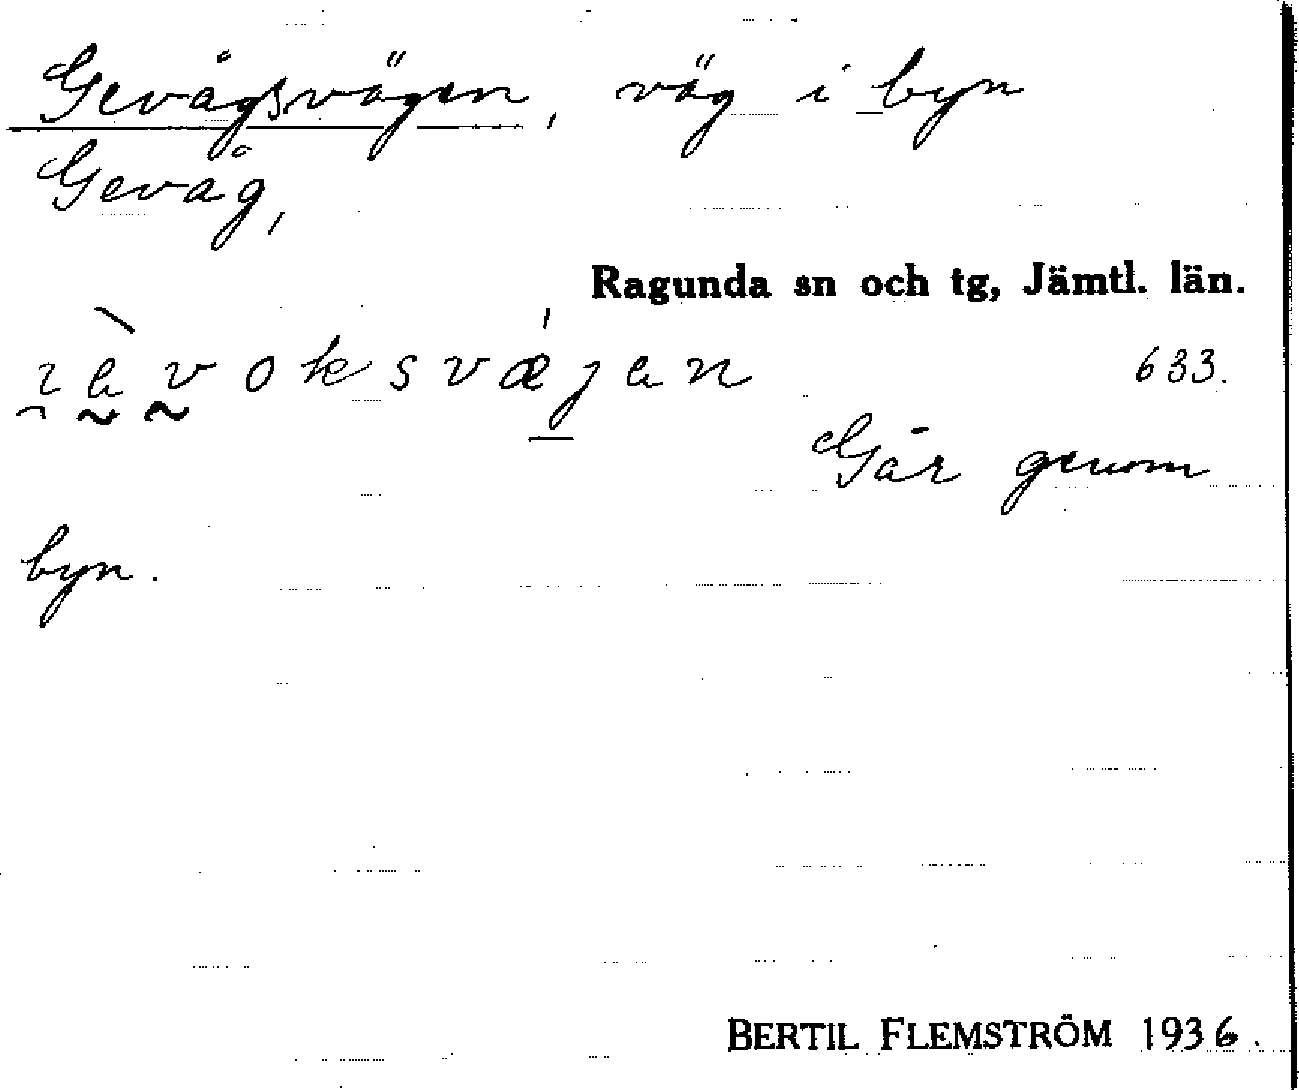 Gevågsvägen, väg i byn
Gevåg,
Ragunda sn och tg, Jämtl. län.
633.
Går genom
byn.
BERTIL FLEMSTRÖM 1936.